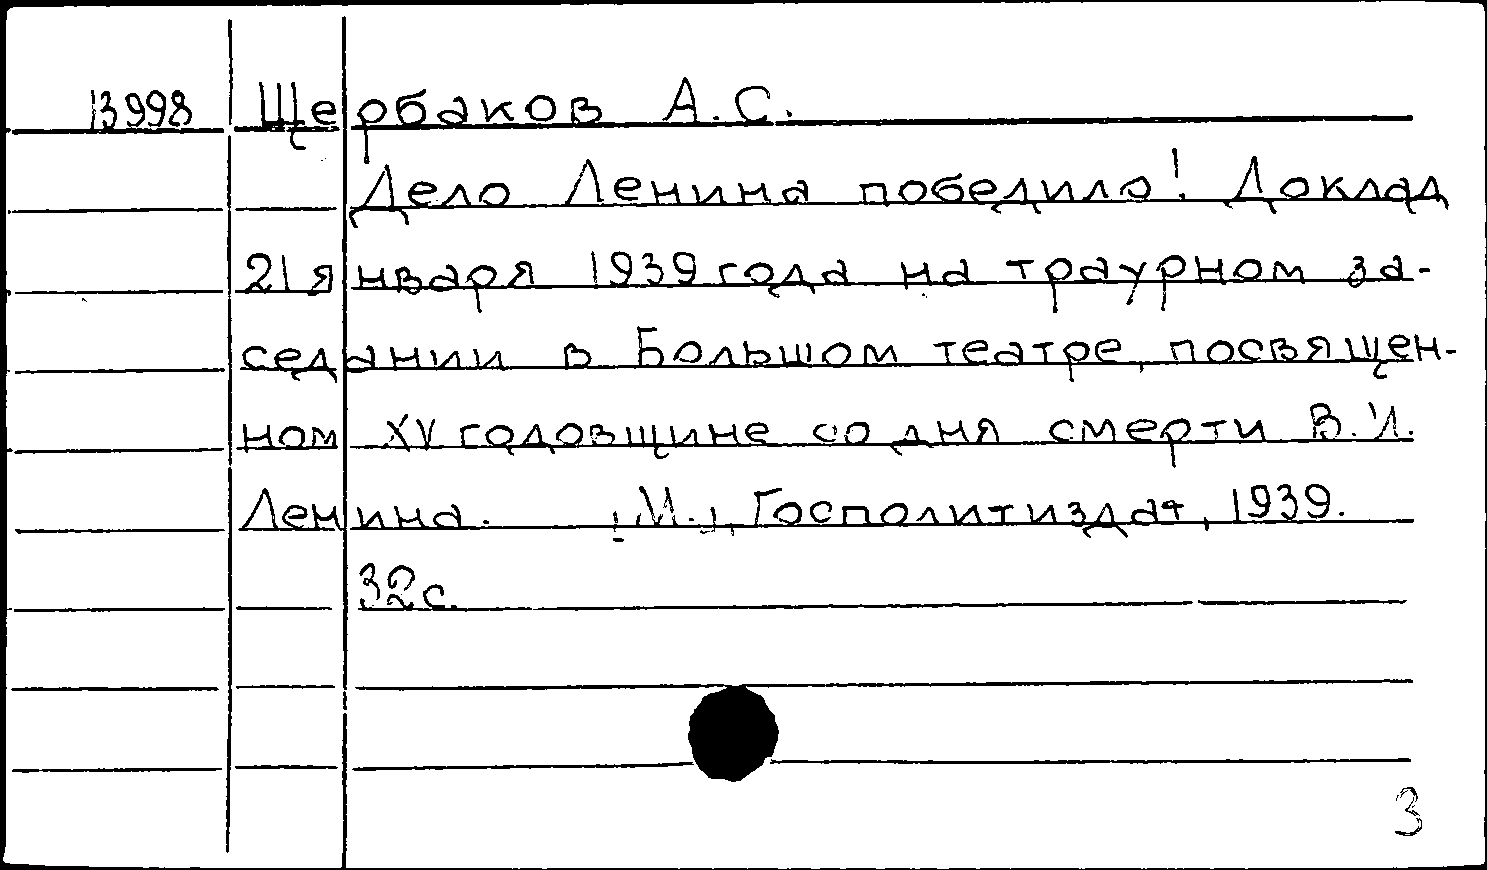 13998 Щербаков А.С.
Дело Ленина победило! Доклад
21 января 1939 года на траурном за-
седании в Большом театре, посвящен-
ном XV годовщине со дня смерти В.И.
Ленина. [М.], Госполитиздат, 1939.
32с.
3